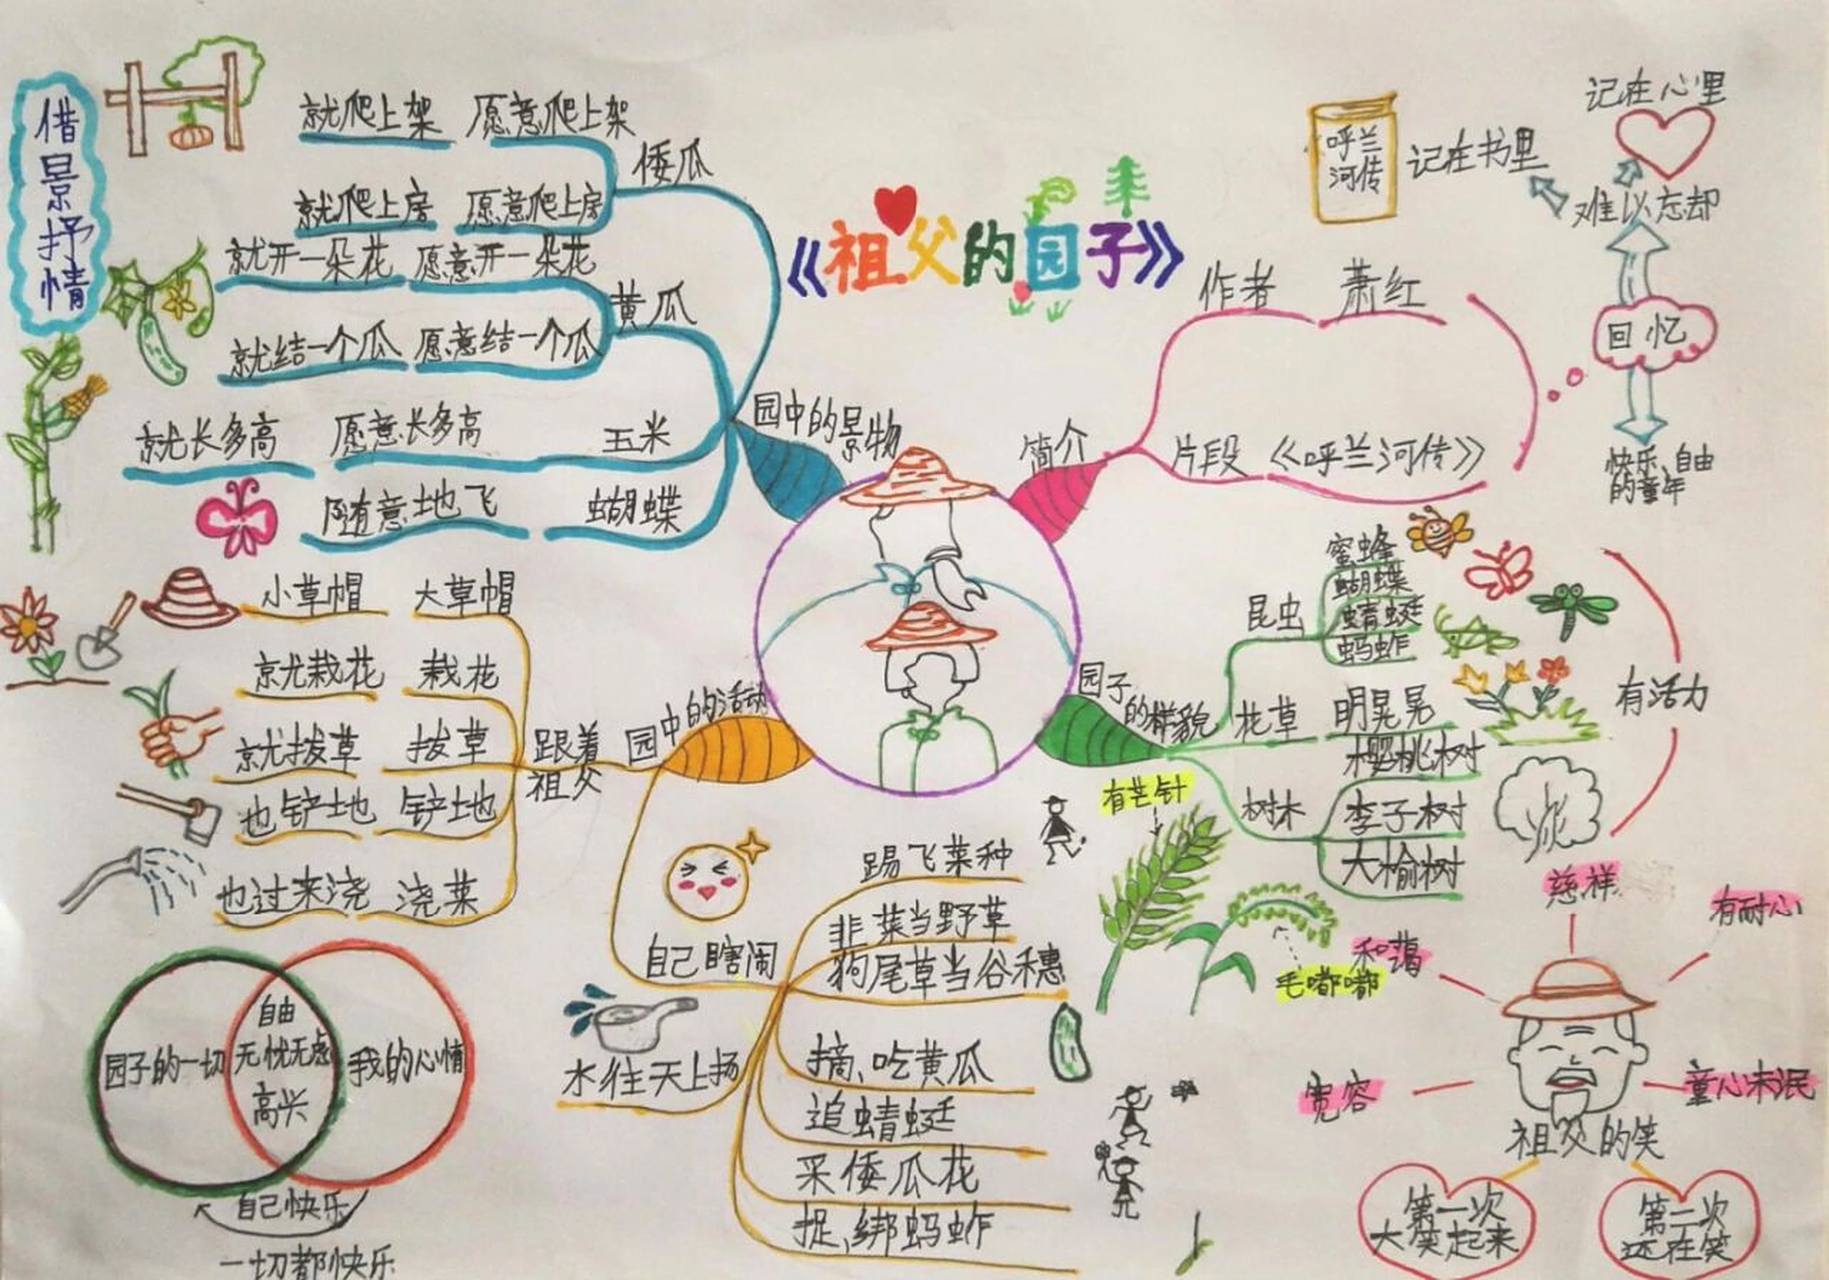 《祖父的园子》
借景抒情
就爬上架 愿意爬上架
倭瓜
就爬上房 愿意爬上房
就开一朵花 愿意开一朵花
黄瓜
就结一个瓜 愿意结一个瓜
就长多高 愿意长多高 玉米
随意地飞 蝴蝶
园中的景物
简介
作者 萧红
片段 《呼兰河传》
呼兰
河传
记在书里
记在心里
难以忘却
回忆
快乐、自由
的童年
园子
的样貌
昆虫
蜜蜂
蝴蝶
蜻蜓
蚂蚱
花草 明晃晃
树木
樱桃树
李子树
大榆树
有活力
有芒针
毛嘟嘟
园中的活动
跟着
祖父
小草帽 大草帽
就栽花 栽花
就拔草 拔草
也铲地 铲地
也过来浇 浇菜
自己瞎闹
踢飞菜种
韭菜当野草
狗尾草当谷穗
摘、吃黄瓜
追蜻蜓
采倭瓜花
捉、绑蚂蚱
水往天上扬
园子的一切
自由
无忧无虑
高兴
我的心情
自己快乐
一切都快乐
慈祥
有耐心
和蔼
宽容
童心未泯
祖父的笑
第一次
大笑起来
第二次
还在笑